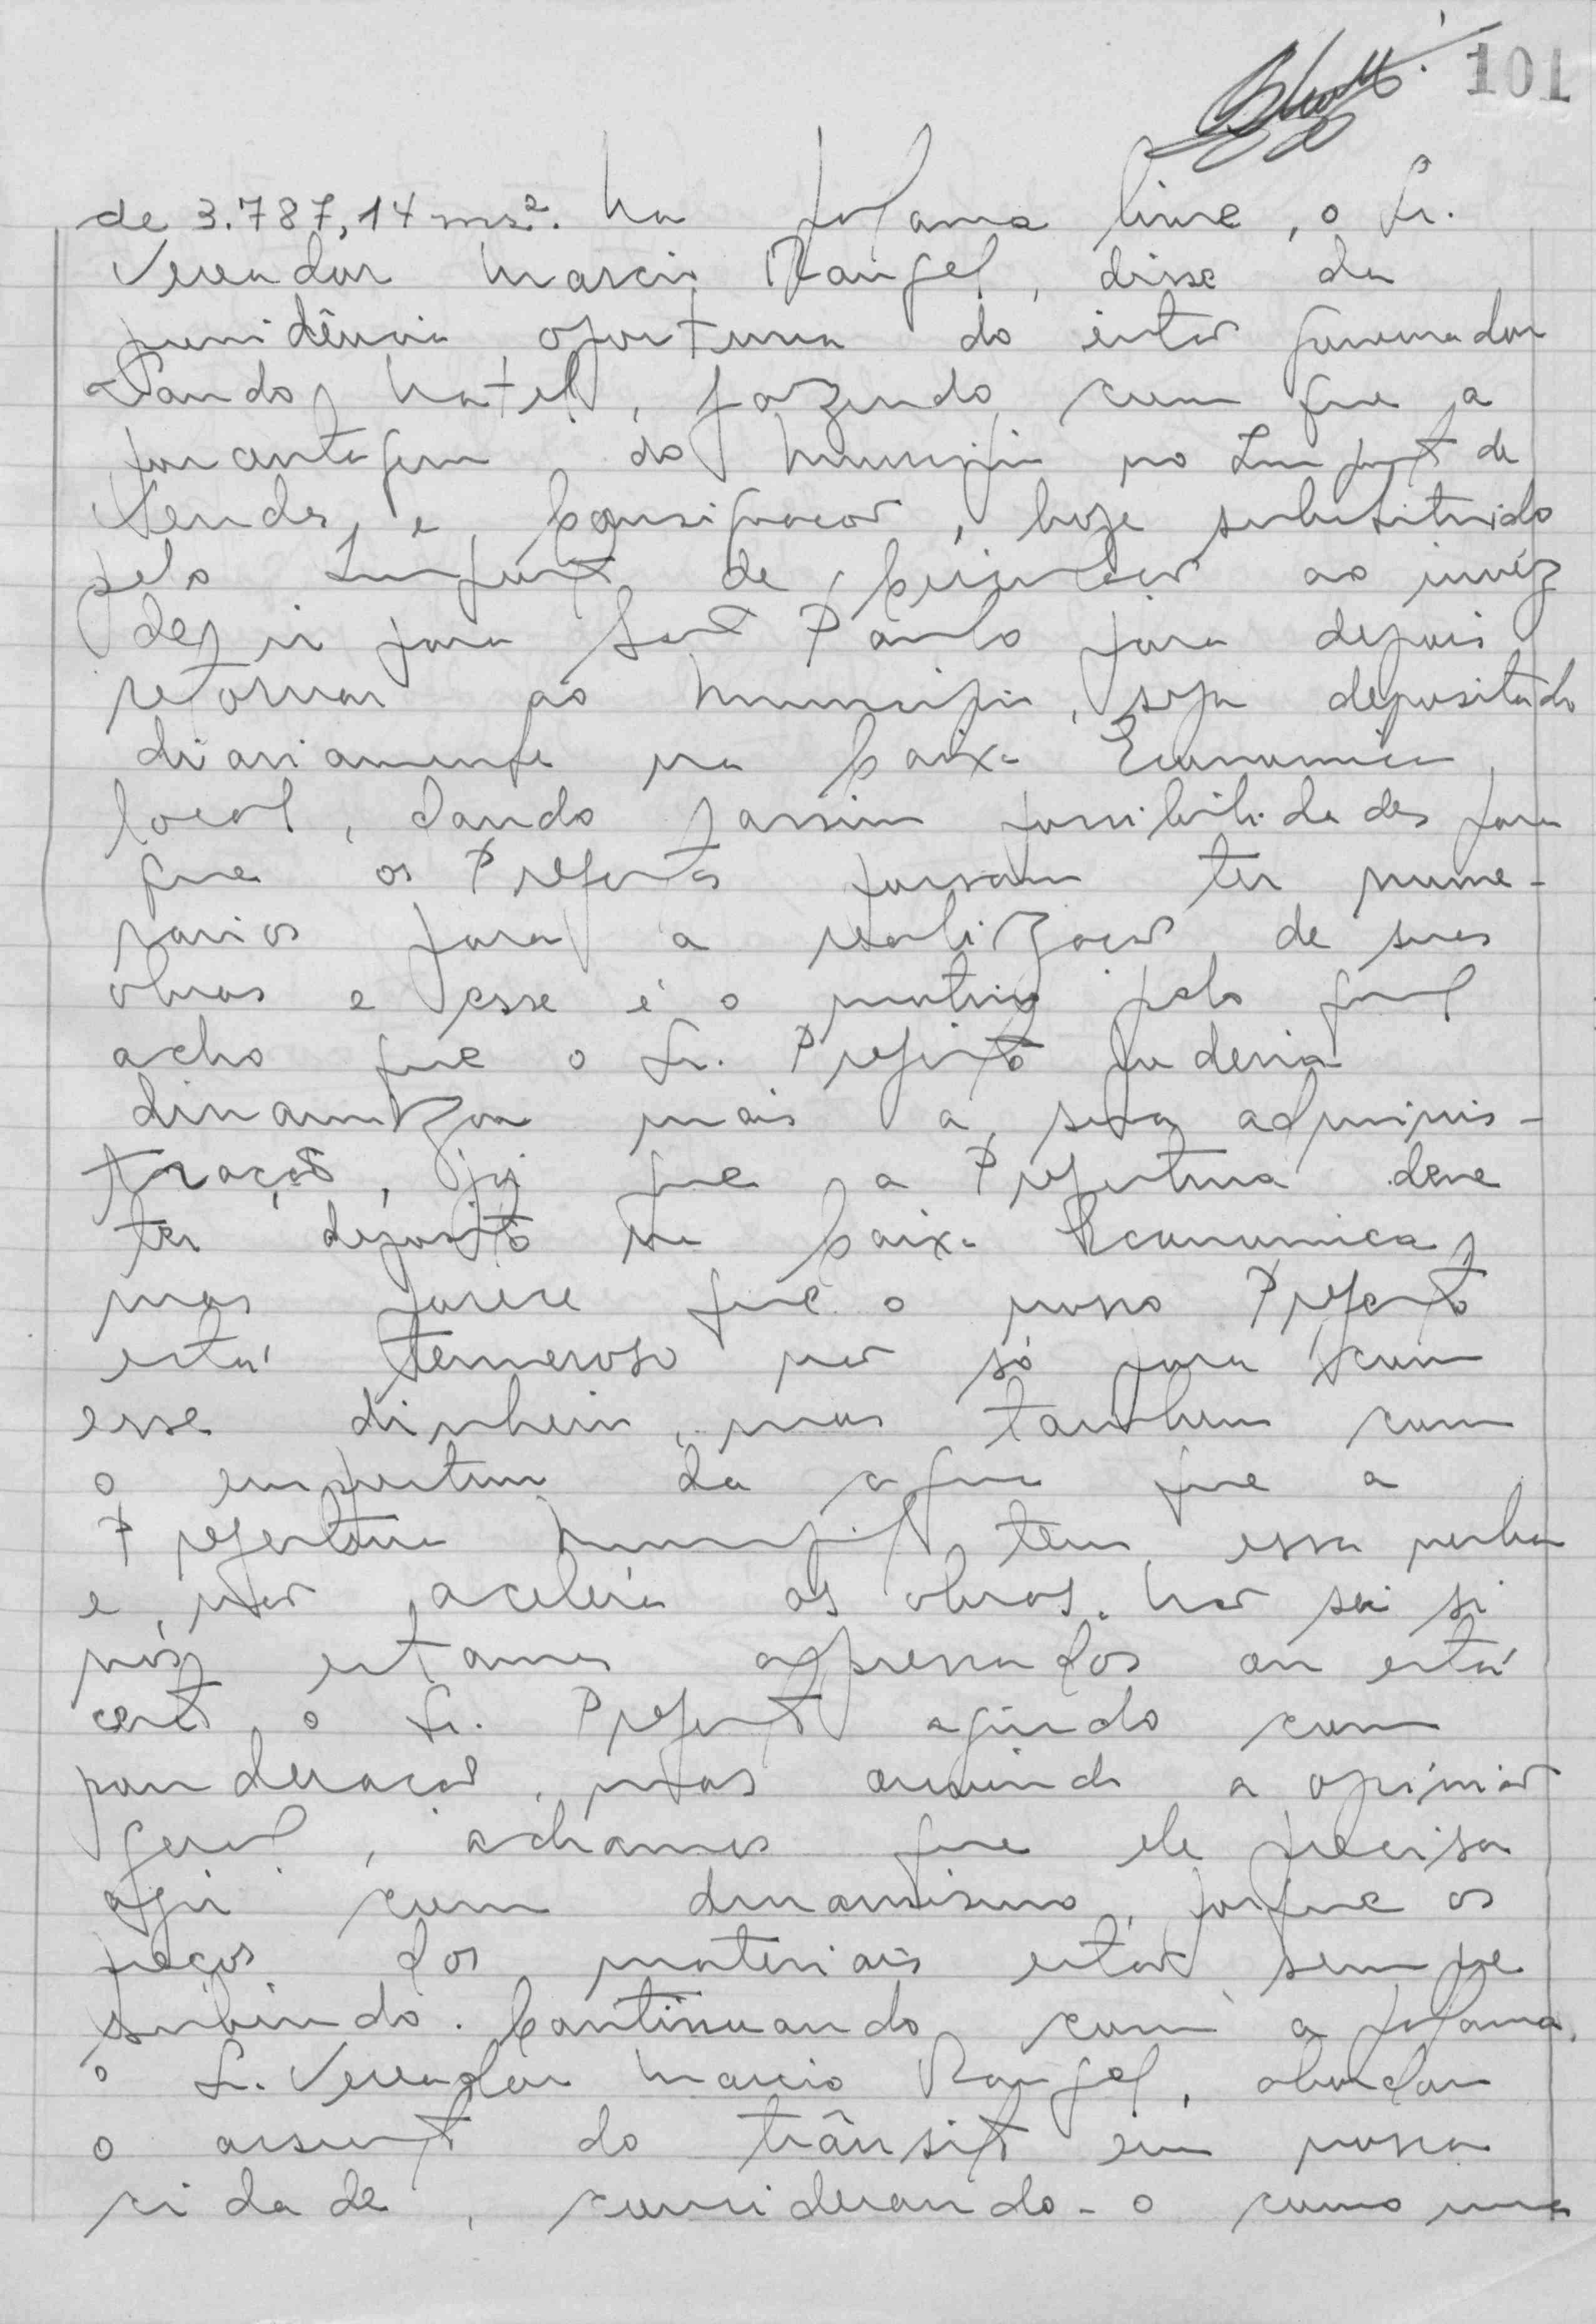 101
de 3.787,14 ms². Na palavra livre, o Sr.
Vereador Marcio Rangel, disse da
providência oportuna do então governador
Laudo Natel, fazendo com que a
porcentagem do Municipio no Imposto de
Vendas e Consignação, hoje substituido
pelo Imposto de Circulação ao invéz
de ir para São Paulo para depois
retornar ao Municipio, seja depositado
diariamente na Caixa Economica
local, dando assim possibilidades para
que os Prefeitos possam ter nume-
rarios para a realização de suas
obras e esse é o motivo pelo qual
acho que o Sr. Prefeito poderia
dinamizar mais a sua adminis-
tração, já que a Prefeitura deve
ter deposito na Caixa Economica,
mas parece que o nosso Prefeito
está temeroso não só para com
esse dinheiro, mas tambem com
o emprestimo da agua que a
Prefeitura Municipal tem essa verba
e não acelera as obras. Não sei si
nós estamos apressados ou está
certo o Sr. Prefeito agindo com
ponderação, mas ouvindo a opinião
geral, achamos que ele precisa
agir com dinamismo, porque os
preços dos materiais estão sempre
subindo. Continuando com a palavra,
o Sr. Vereador Marcio Rangel, abordou
o assunto do trânsito em nossa
cidade, considerando-o como uma